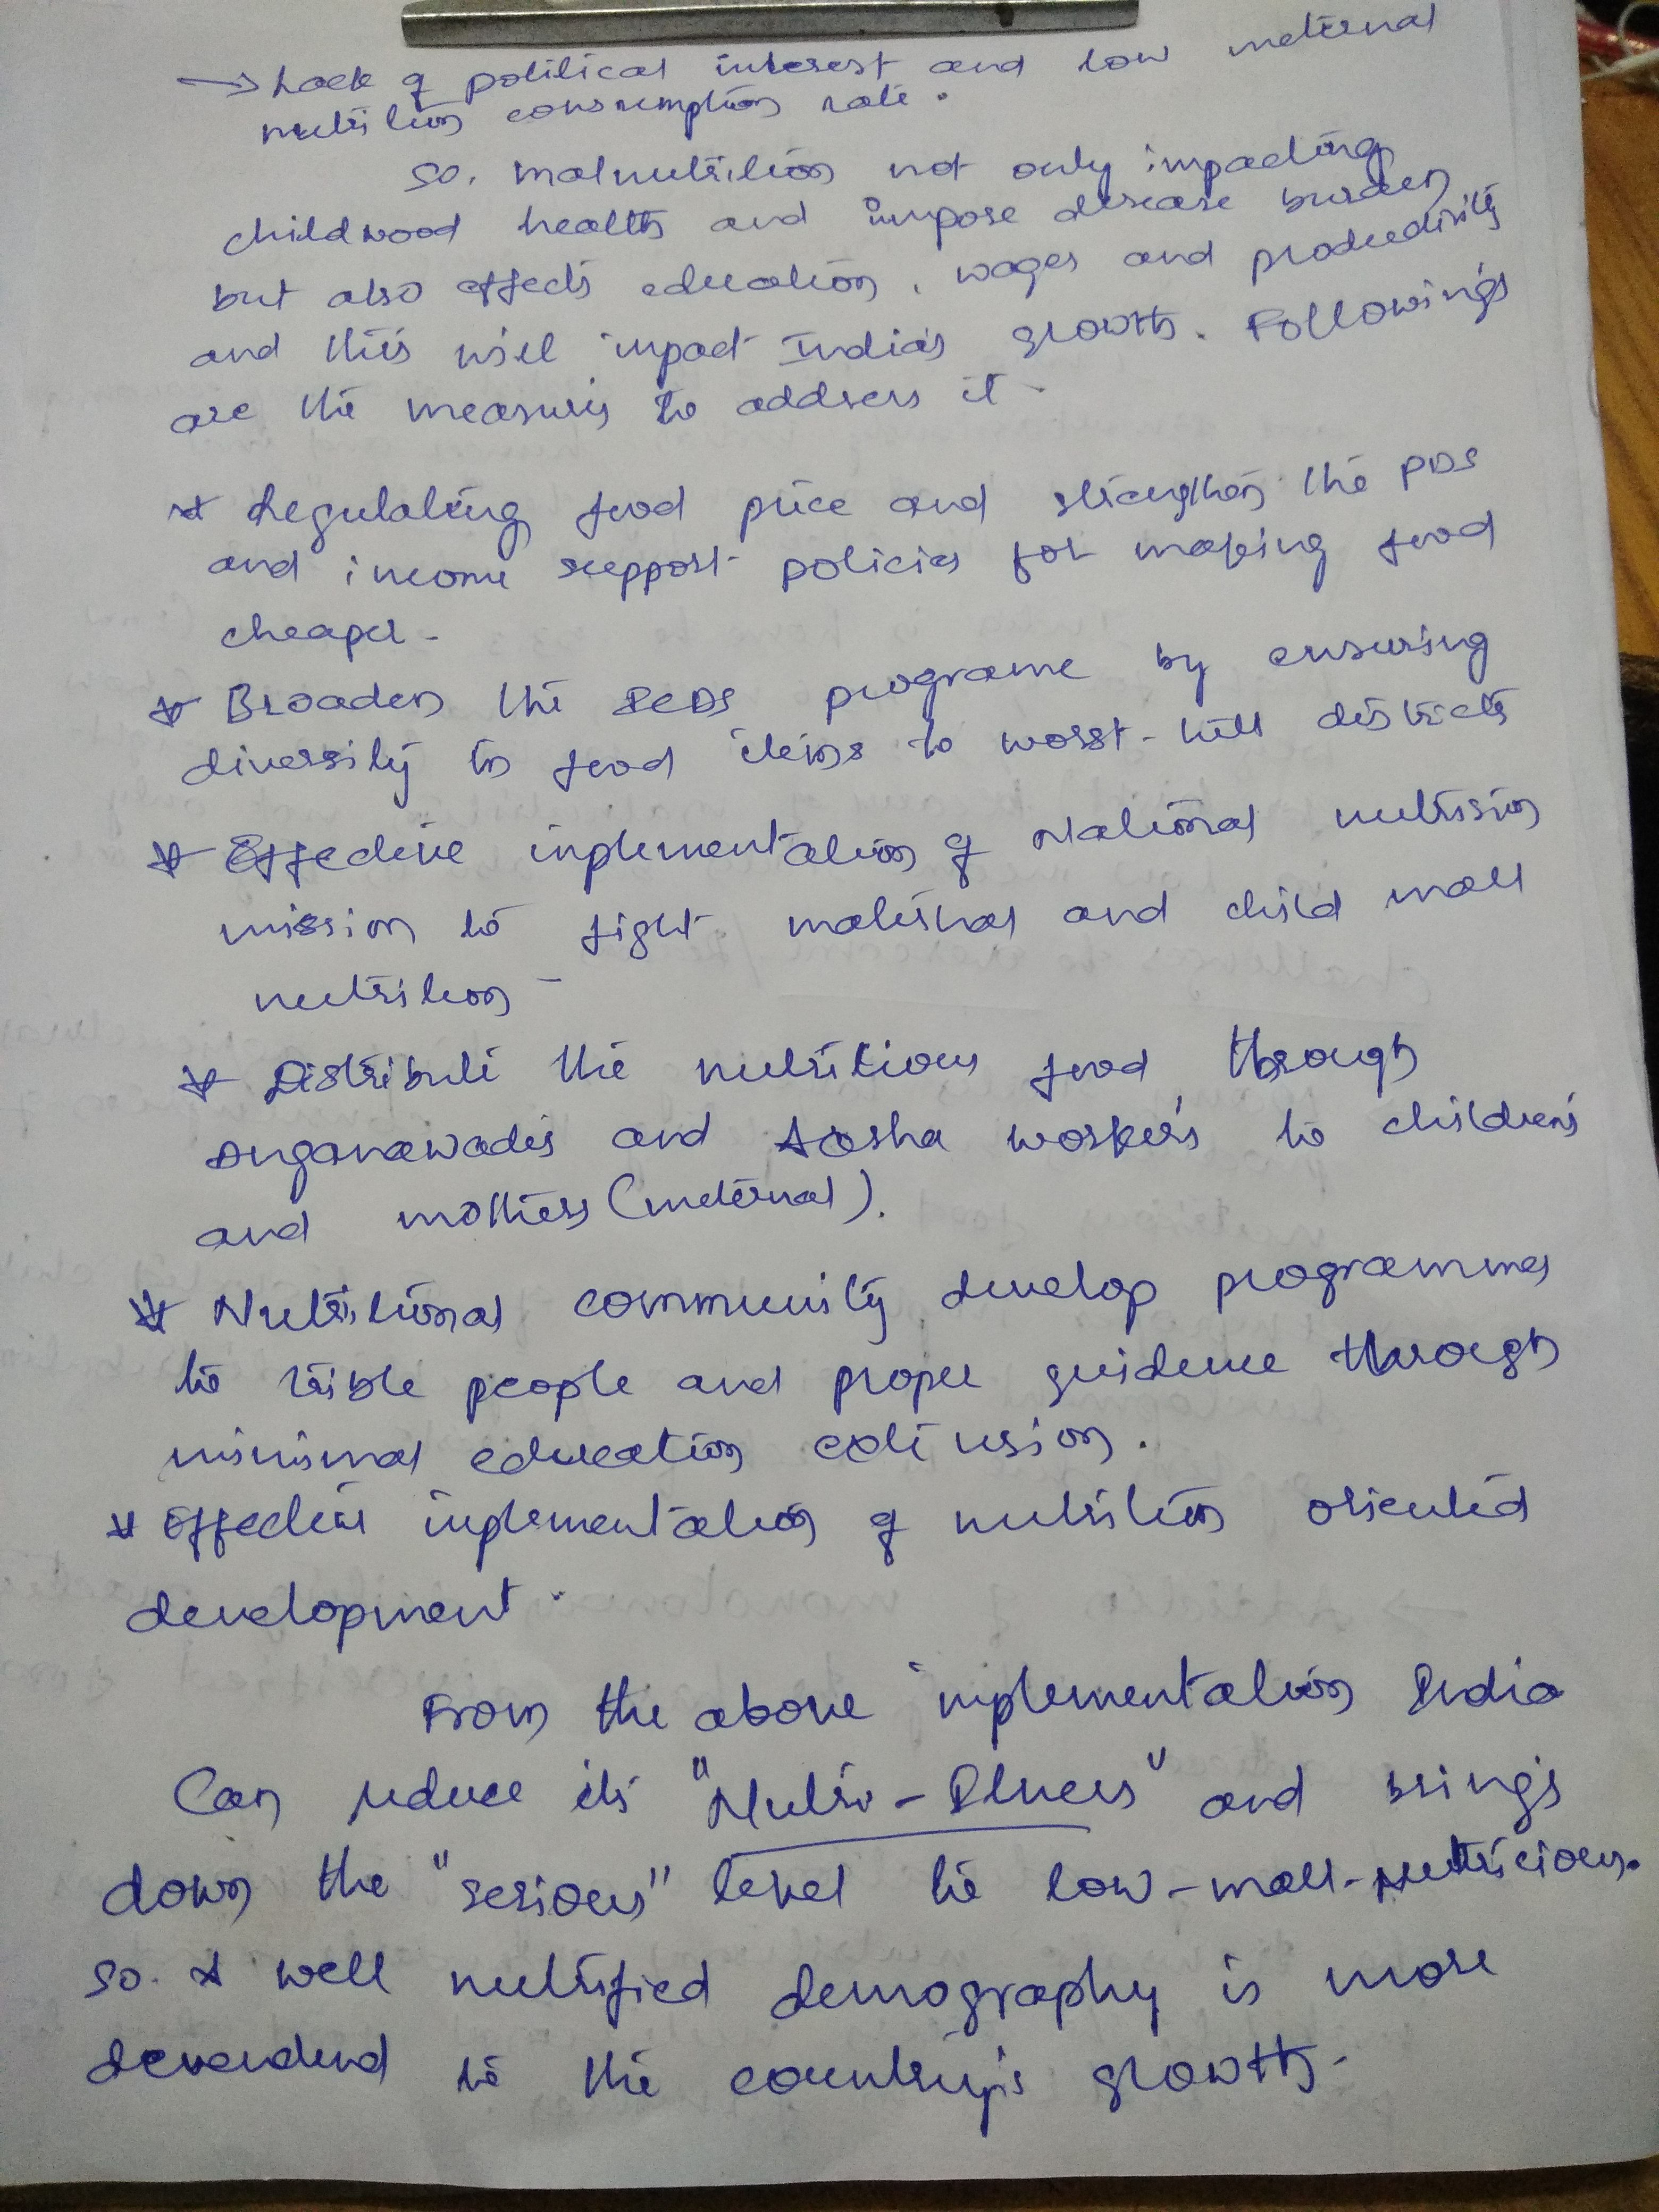 → Lack of political interest and low meternal
nutrition consumption rate.
So, malnutrition not only impacting
childwood health and impose disease burden
but also effects education, wages and productivity
and this will impact India's growth. Following's
are the measures to address it.
* Regulating food price and strengthen the PDS
and income support policies for making food
cheaper.
* Broaden the ICDS programe by ensuring
diversity in food items to worst-hitt districts
* Effective implementation of National nutrision
mission to fight maternal and child mall
nutrition.
* Distribute the nutritious food through
anganawadis and Aasha worker's to children's
and mothers (meternal).
* Nutritional community develop programmes
to trible people and proper guidence through
minimal education extension.
* Effective implementation of nutrition oriented
development.
From the above implementation India
Can reduce its "Nutri-Illness" and brings
down the "serious" level to low-mall-nutricious.
so. A well nutrified demography is more
to the country's growth.